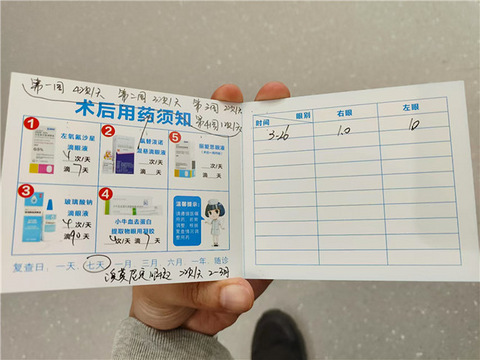 第一周 4次/天 第二周 3次/天 第3周 2次/天
第4周 1次/天
术后用药须知
1 左氧氟沙星
滴眼液
4次/天
滴7天
2 氟替泼诺
混悬滴眼液
次/天
滴 天
5 丽爱思眼液
3 玻璃酸钠
滴眼液
4次/天
滴90天
4 小牛血去蛋白
提取物眼用凝胶
4次/天 滴7天
温馨提示:
复查日、一天、七天、一月、三月、六月、一年、随诊
2次/天 2-3月
时间 眼别 右眼 左眼
3-16 1.0 1.0